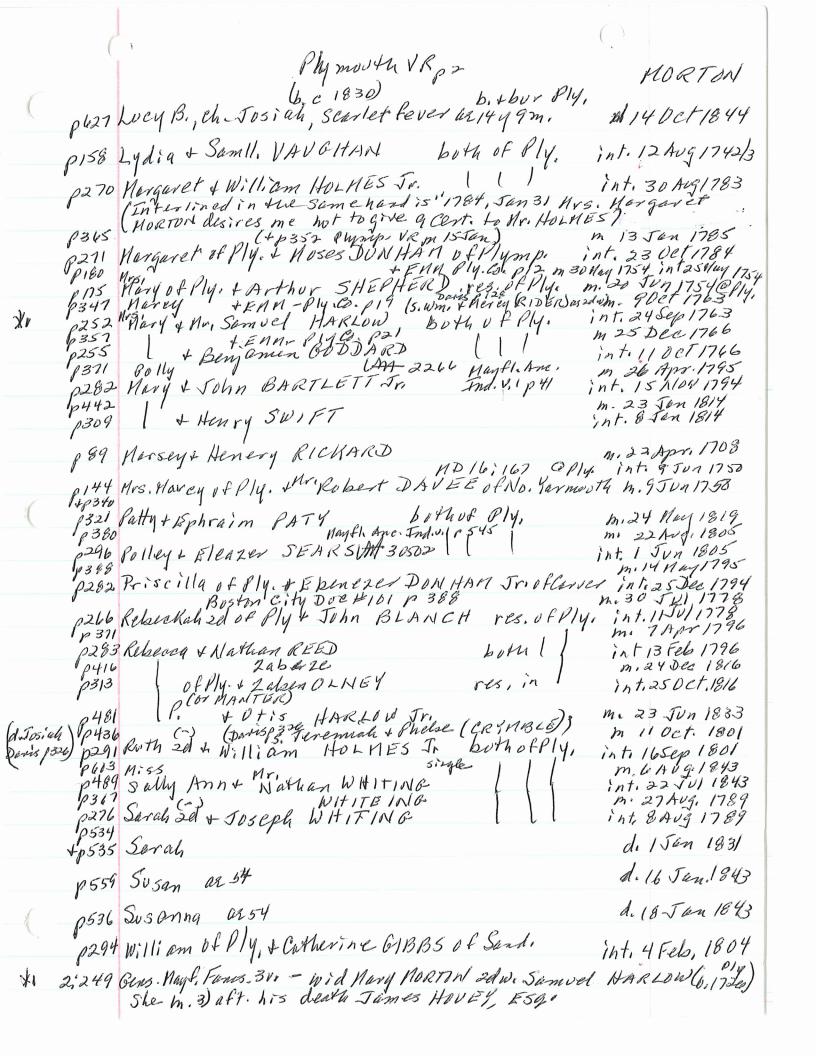 Plymouth VR p2 MORTON
(b. c 1830) b. + bur Ply.
p427 Lucy B., ch. Josiah, Scarlet fever ae 14y 9m. d 14 Oct 1844
p158 Lydia + Samll. VAUGHAN both of Ply. int. 12 Aug 1742/3
p270 Margaret + William HOLMES Jr. int. 30 Aug 1783
(Interlined in the same hand is "1784, Jan 31 Mrs. Margaret
MORTON desires me not to give a Cert. to Mr. HOLMES)
p365 (+p352 Plymp. VR m 15 Jan) m 13 Jan 1785
p271 Margaret of Ply. + Moses DUNHAM of Plymp. int. 23 Oct 1784
p160 + EMM Ply. Co. p12 m 30 May 1754, int 25 May 1754
p175 Mrs. Mary of Ply. + Arthur SHEPHERD, res. of Ply. m. 20 Jun 1754 @ Ply.
p347 Marcy + EMM - Ply. Co. p19 (s. Wm. + Mercy RIDER) m. 9 Oct 1763
p252 Mrs. Mary + Mr. Samuel HARLOW both of Ply. int. 24 Sep 1763
p357 + EMM Ply Co. p21 m 25 Dec 1766
p255 + Benjamin GODDARD int. 11 Oct 1766
p371 Polly 2266 Mayfl. Anc. m. 26 Apr. 1795
p282 Mary + John BARTLETT Jr. Ind. V. 1 p41 int. 15 Nov 1794
p442 m. 23 Jan 1814
p309 + Henry SWIFT int. 8 Jan 1814
p89 Marsey + Henery RICKARD m. 22 Apr. 1708
MD 16:167 @ Ply. int. 9 Jun 1750
p144 Mrs. Marcy of Ply. + Mr. Robert DAVEE of No. Yarmouth m. 9 Jun 1750
+p340
p321 Patty + Ephraim PATY both of Ply. m. 24 May 1819
p380 Mayfl. Anc. Ind. V. 1 p 545 m. 22 Aug. 1805
p296 Polley + Eleazer SEARS 30502 int. 1 Jun 1805
p388 m. 14 May 1795
p282 Priscilla of Ply. + Ebenezer DONHAM Jr. of Carver int. 25 Dec 1794
Boston City Doc #101 p 388 m. 30 Jul 1778
p266 Rebeckah 2d of Ply + John BLANCH res. of Ply. int. 11 Jul 1778
p371 m. 7 Apr 1796
p283 Rebecca + Nathan REED both int 13 Feb 1796
p416 Zabeze m. 24 Dec 1816
p313 of Ply. + Zaben OLNEY res, in int. 25 Oct. 1816
p (or MANTER)
p481 P. + Otis HARLOW Jr. m. 23 Jun 1833
(d. Josiah p436 (-) (Davis p326 s. Jeremiah + Phebe (CRYMBLE)) m 11 Oct. 1801
Davis p326) p291 Ruth 2d + William HOLMES Jr both of Ply. int. 16 Sep 1801
p613 Miss Mr. single m. 6 Aug. 1843
p489 Sally Ann + Nathan WHITING int. 22 Jul 1843
p367 (-) WHITEING m. 27 Aug. 1789
p276 Sarah 2d + Joseph WHITING int. 8 Aug 1789
p534
+p535 Sarah d. 1 Jan 1831
p559 Susan ae 54 d. 16 Jan. 1843
p536 Susanna ae 54 d. 18 Jan 1843
p294 William of Ply. + Catherine GIBBS of Sand. int. 4 Feb, 1804
2:249 Gens. Mayf. Fams. 3v. - wid Mary MORTON 2d w. Samuel HARLOW (Ply b. 1726)
She m. 3) aft. his death James HOVEY, ESq.